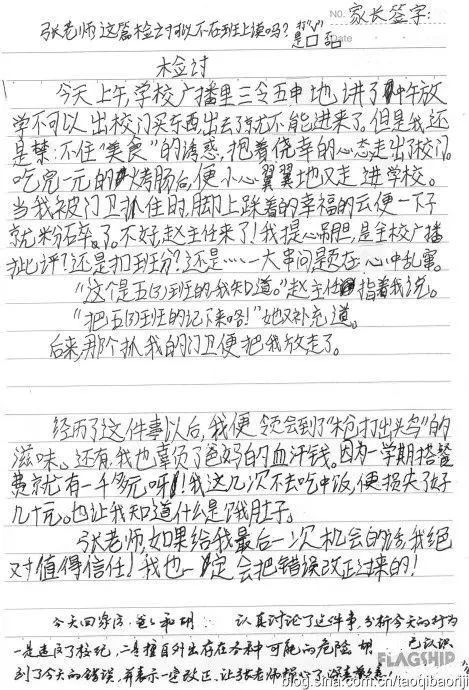 张老师这篇检讨可以不在班上读吗?打"√"
是□ 否□
NO.
Date
家长签字:
检讨
今天上午,学校广播里三令五申地讲了中午放
学不可以出校门买东西出去了就不能进来了。但是我还
是禁不住“美食”的诱惑,抱着侥幸的心态走出了校门。
吃完一元的烤肠后,便小心翼翼地又走进学校。
当我被门卫抓住时,脚上踩着的幸福的云便一下子
就粉碎了。不好,赵主任来了!我提心吊胆,是全校广播
批评?还是扣班分?还是……一大串问题在心中乱窜。
“这个是五(3)班的我知道。”赵主任指着我说。
“把五(3)班的记下来咯!”她又补充道。
后来,那个抓我的门卫便把我放走了。
经历了这件事以后,我便领会到了“枪打出头鸟”的
滋味。还有,我也辜负了爸妈的血汗钱。因为一学期搭餐
费就有一千多元呀!我这几次不去吃中饭,便损失了好
几十元。也让我知道什么是饿肚子。
张老师,如果给我最后一次机会的话,我绝
对值得信任!我也一定会把错误改正过来的!
今天回家后,爸爸和 认真讨论了这件事,分析今天的行为
一是违反了校纪,二是擅自外出存在各种可能的危险 已认识
到了今天的错误,并表示一定改正,让张老师操心了
FLAGSHIP
blog.sina.com.cn/taoqibaoriji